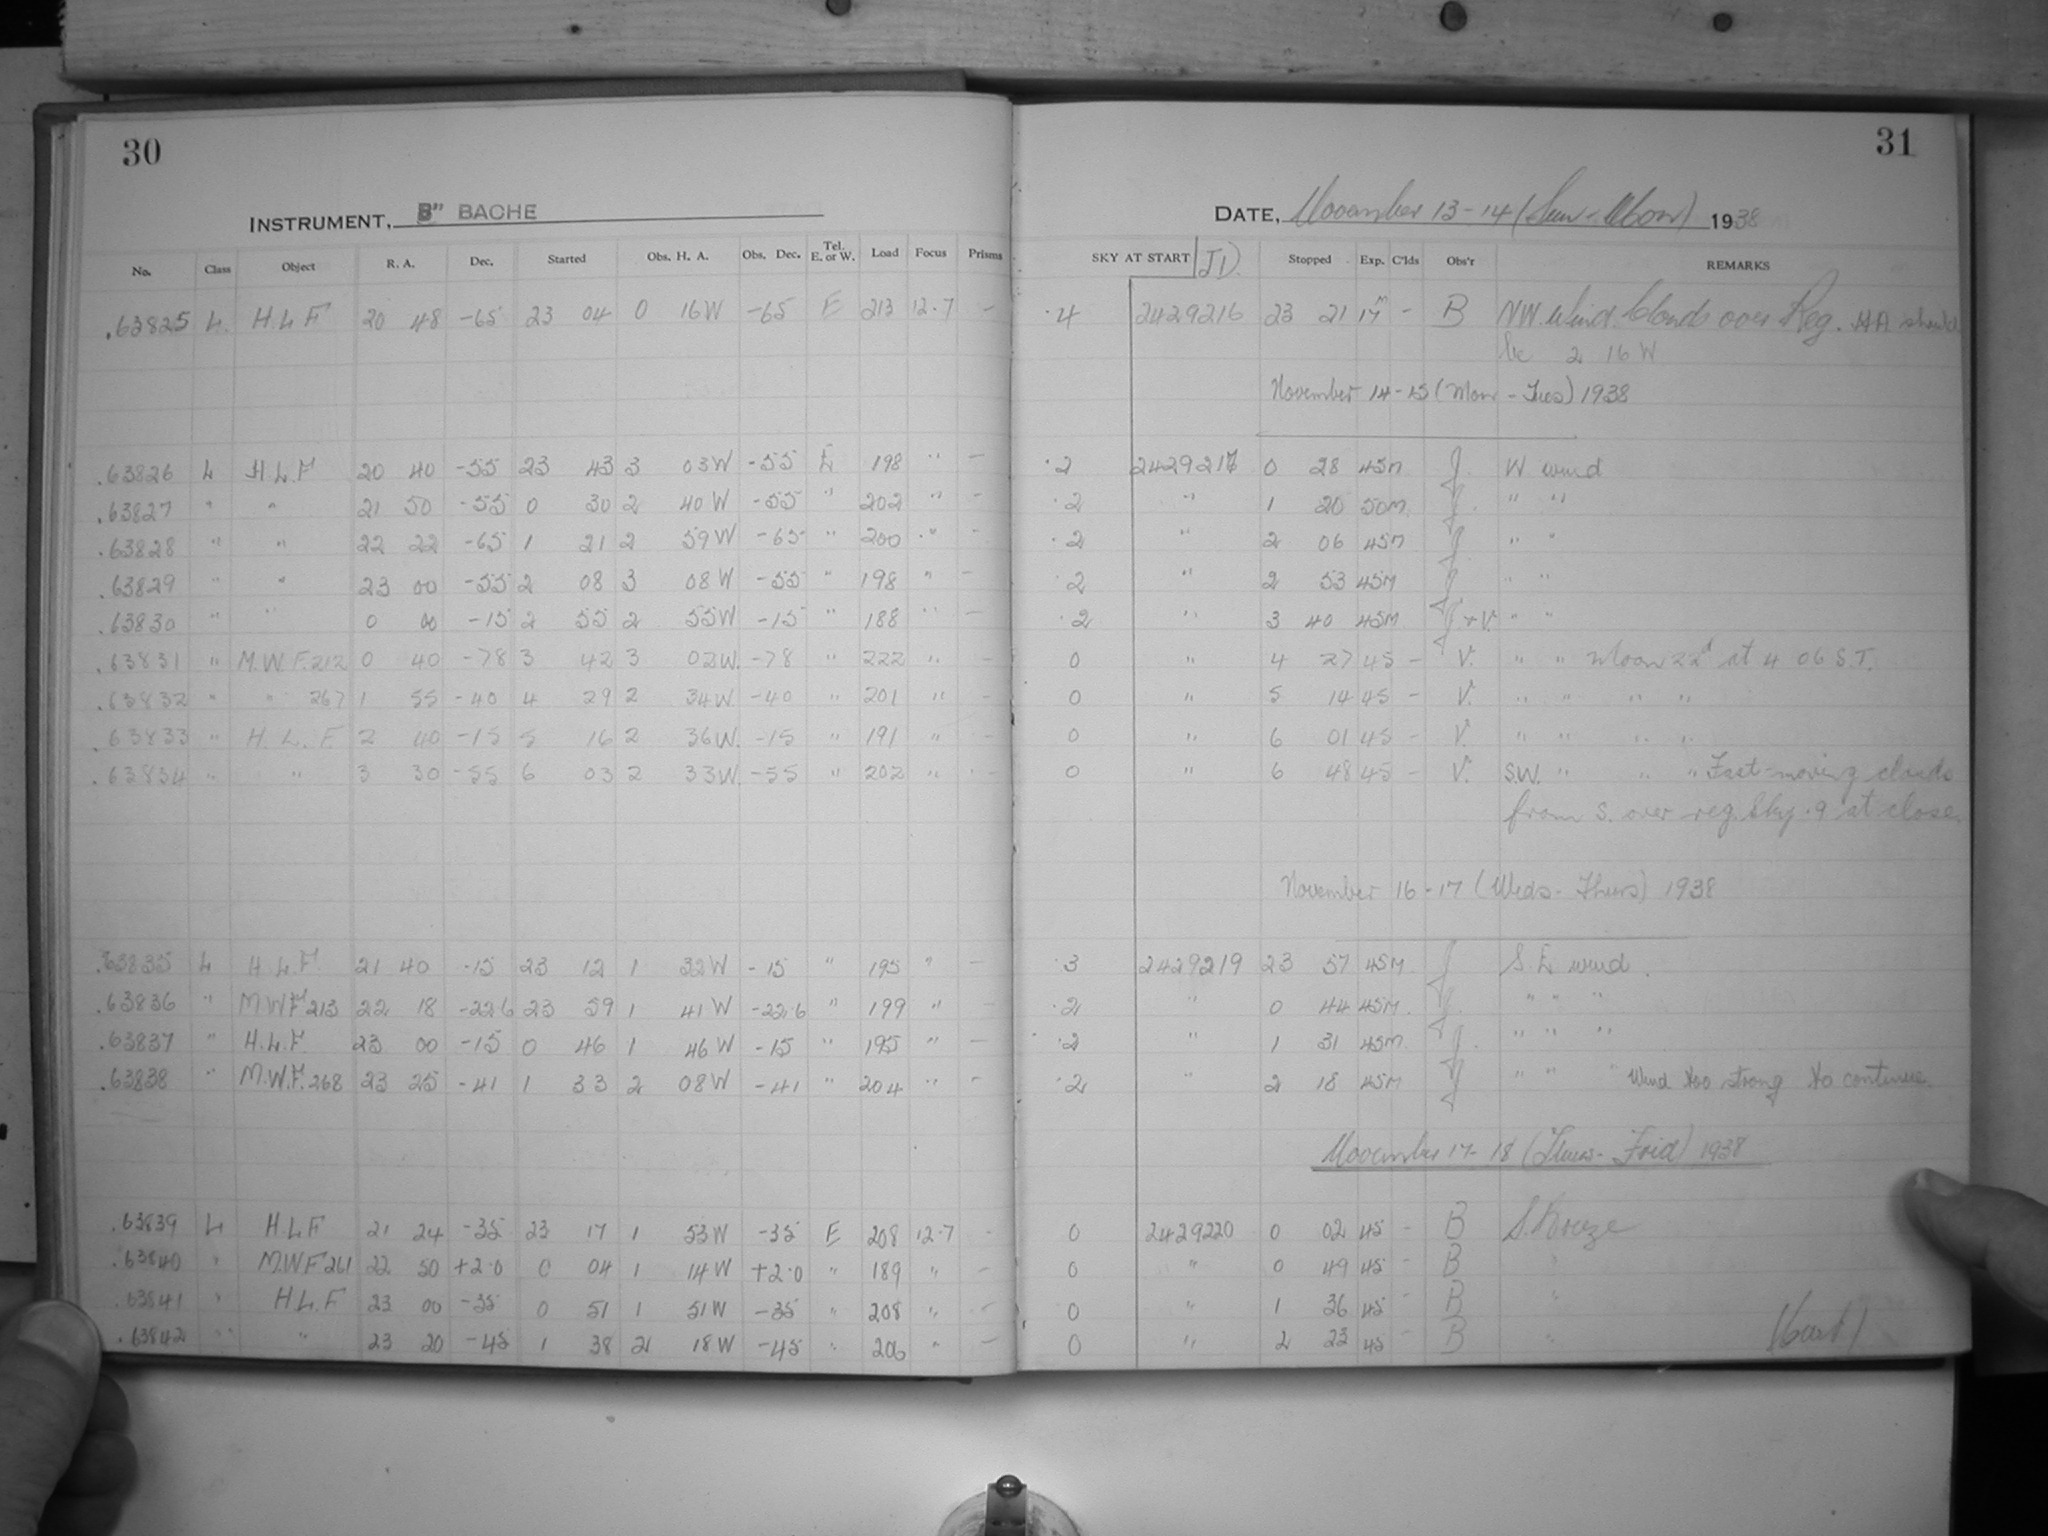 30
INSTRUMENT, 8" BACHE
No. Class Object R. A. Dec. Started Obs. H. A. Obs. Dec. Tel. E. or W. Load Focus Prisms
.63825 L. H.L.F 20 48 -65 23 04 0 16W -65 E 213 12.7 -
.63826 L H.L.F 20 40 -55 23 43 3 03W -55 E 198 " -
.63827 " " 21 50 -55 0 30 2 40W -55 " 202 " -
.63828 " " 22 22 -65 1 21 2 59W -65 " 200 " -
.63829 " " 23 00 -55 2 08 3 08W -55 " 198 " -
.63830 " " 0 00 -15 2 55 2 55W -15 " 188 " -
.63831 " M.W.F. 212 0 40 -78 3 42 3 02W. -78 " 222 " -
.63832 " " 267 1 55 -40 4 29 2 34W -40 " 201 " -
.63833 " H. L. F. 2 40 -15 5 16 2 36W. -15 " 191 " -
.63834 " " 3 30 -55 6 03 2 33W. -55 " 202 " -
.63835 L H.L.F. 21 40 -15 23 12 1 32W -15 " 195 " -
.63836 " M.W.F. 213 22 18 -22.6 23 59 1 41W -22.6 " 199 " -
.63837 " H.L.F. 23 00 -15 0 46 1 46W -15 " 195 " -
.63838 " M.W.F. 268 23 25 -41 1 33 2 08W -41 " 204 " -
.63839 L H.L.F 21 24 -35 23 17 1 53W -35 E 208 12.7 -
.63840 " M.W.F 261 22 50 +2.0 0 04 1 14W +2.0 " 189 " -
.63841 " H.L.F 23 00 -35 0 51 1 51W -35 " 208 " -
.63842 " " 23 20 -45 1 38 2 18W -45 " 206 " -
31
DATE, November 13-14 (Sun-Mon) 1938
SKY AT START J.D. Stopped Exp. C'lds Obs'r REMARKS
.4 2429216 23 21 17m - B NW. Wind. Clouds over Reg. HA should
be 2 16 W
November 14-15 (Mon - Tues) 1938
.2 2429217 0 28 45m J. W wind
.2 " 1 20 50m. J. " "
.2 " 2 06 45m J. " "
.2 " 2 53 45m J " "
.2 " 3 40 45m J + V. " "
0 " 4 27 45 - V. " " Moon 22d at 4 06 S.T.
0 " 5 14 45 - V. " " " "
0 " 6 01 45 - V. " " " "
0 " 6 48 45 - V. S.W. " " " Fast-moving clouds
from S. over reg. Sky .9 at close.
November 16-17 (Weds - Thurs) 1938
.3 2429219 23 57 45m. J S.E wind.
.2 " 0 44 45m. J. " " "
.2 " 1 31 45m J. " " "
.2 " 2 18 45m J " " " Wind too strong to continue.
November 17-18 (Thurs - Frid) 1938
0 2429220 0 02 45 - B S. Breeze
0 " 0 49 45 - B "
0 " 1 36 45 - B "
0 " 2 23 45 - B "